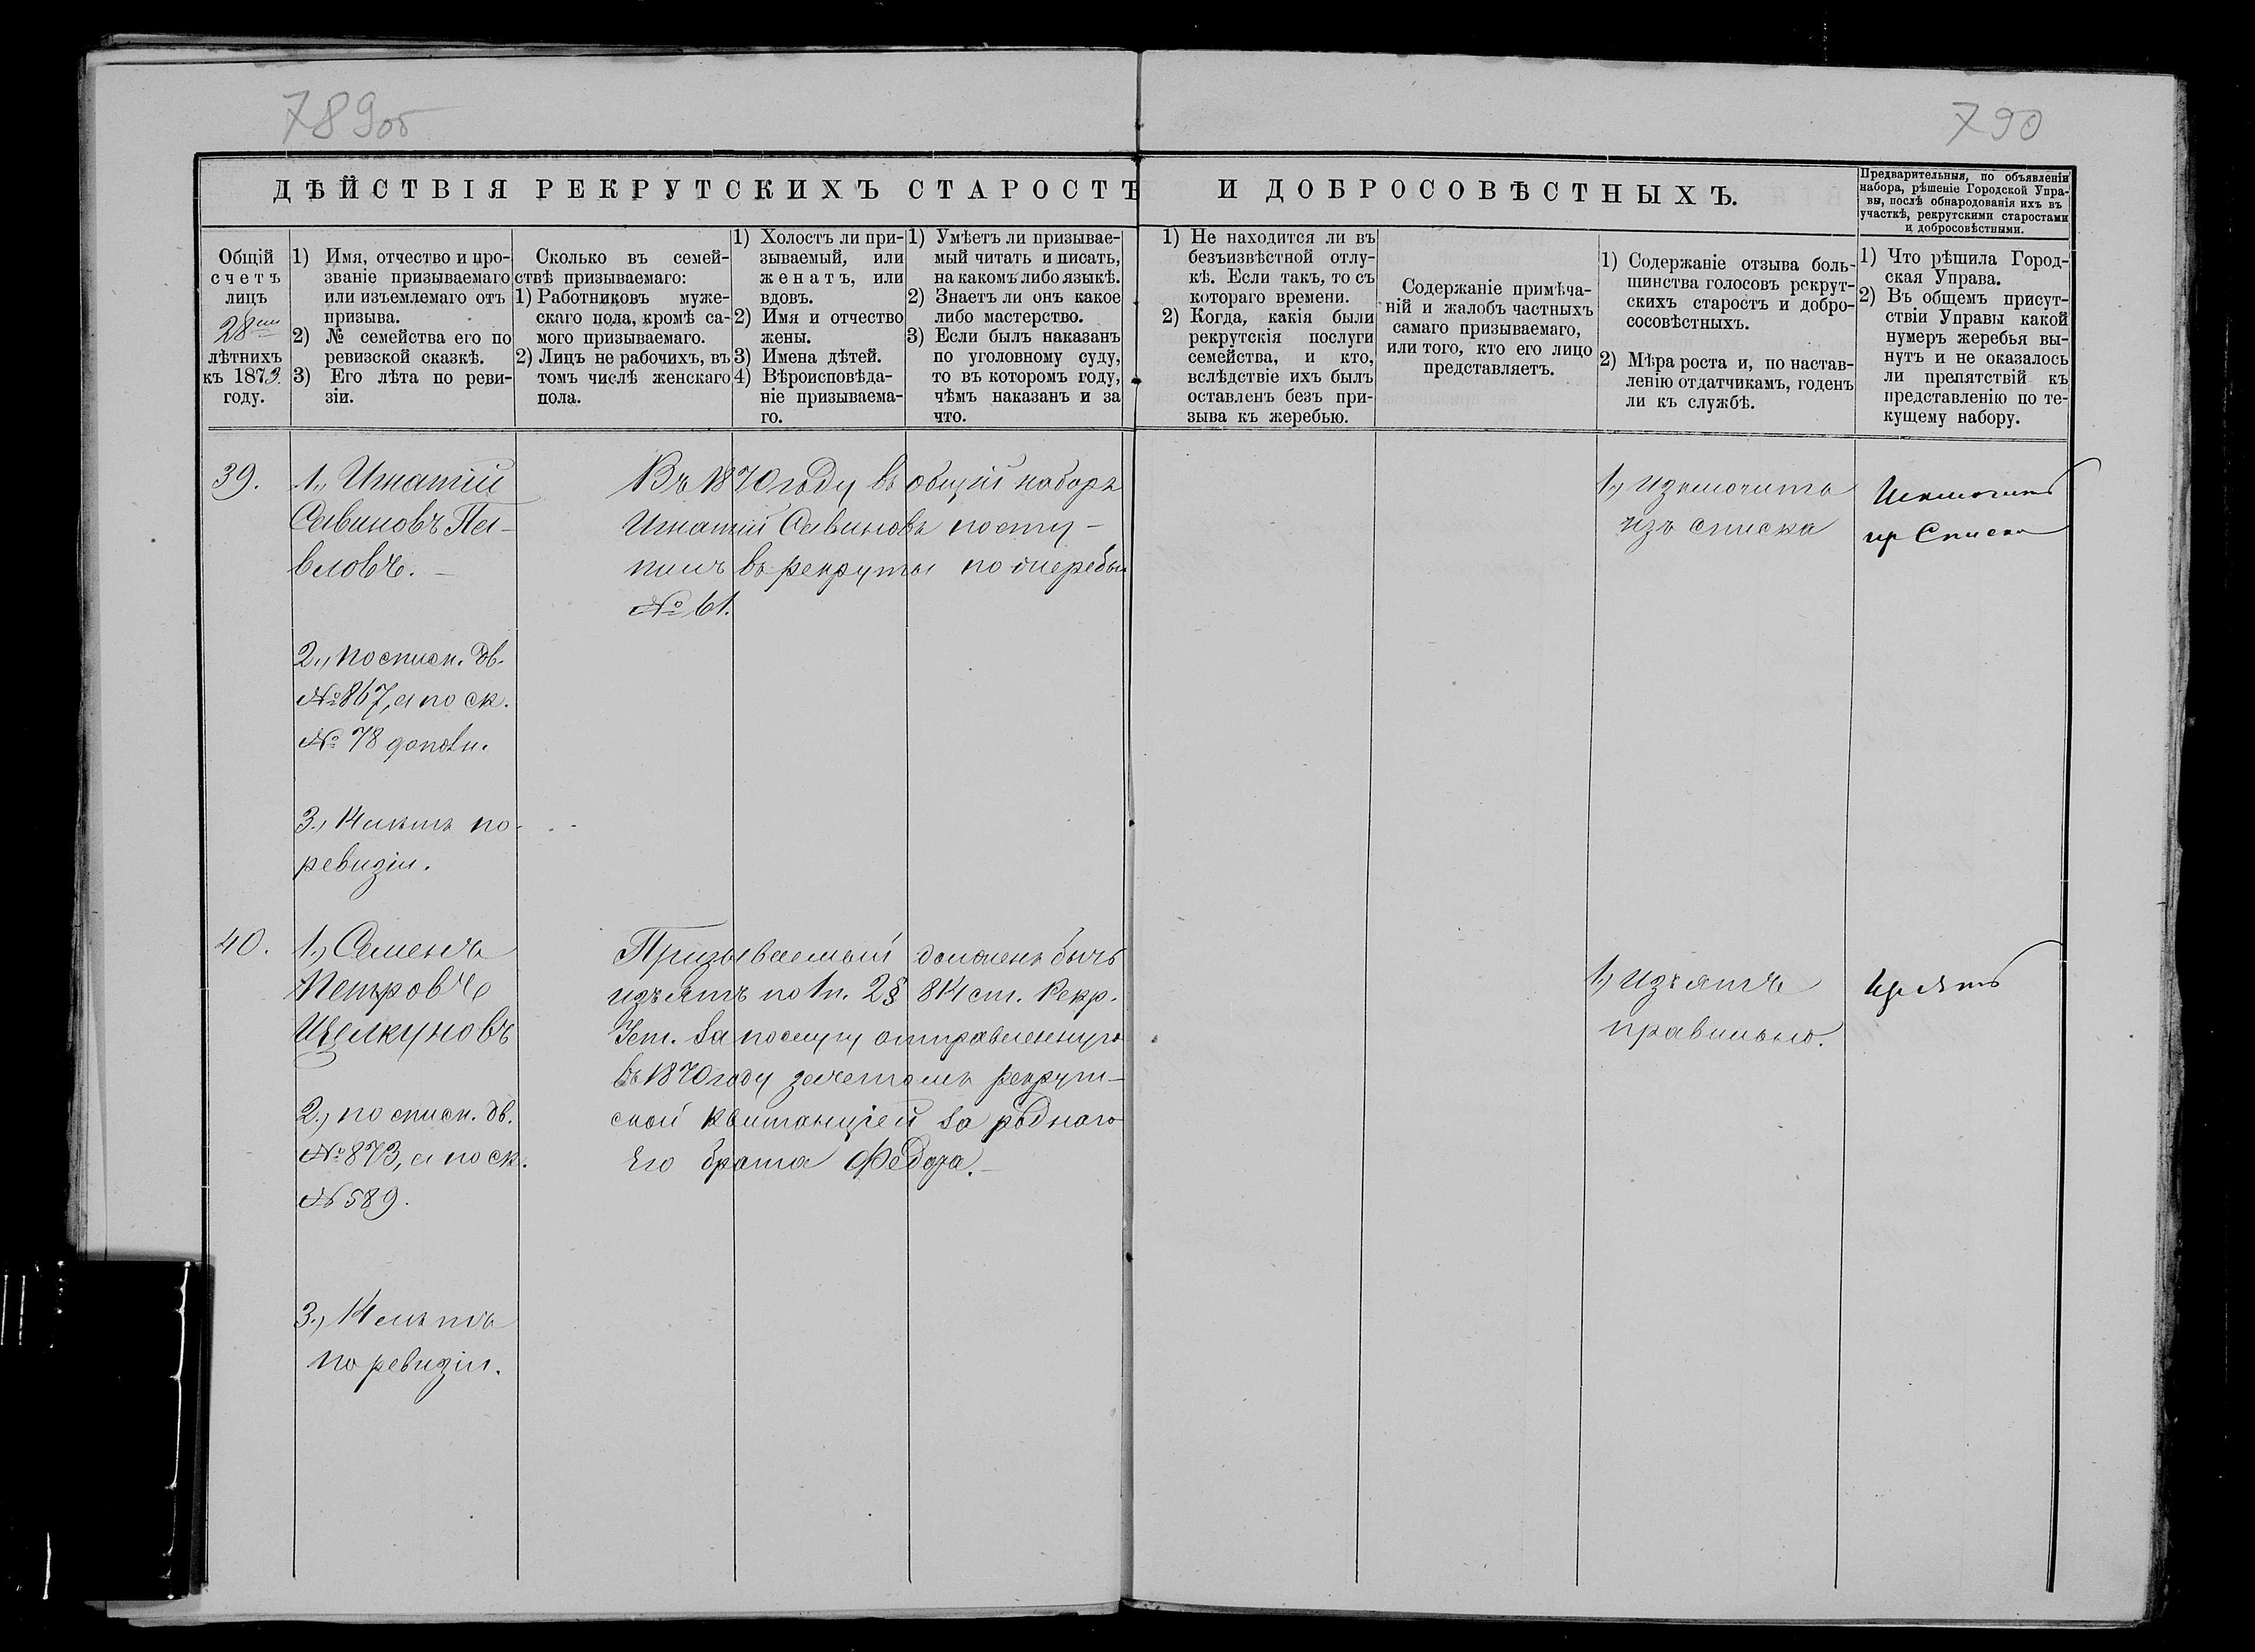 789об
790
ДѢЙСТВІЯ РЕКРУТСКИХЪ СТАРОСТЪ И ДОБРОСОВѢСТНЫХЪ.
Предварительныя, по объявленіи
набора, рѣшеніе Городской Упра-
вы, послѣ обнародованія ихъ въ
участкѣ, рекрутскими старостами
и добросовѣстными.
Общій
счетъ
лицъ
28ми
лѣтнихъ
къ 1873
году.
1) Имя, отчество и про-
званіе призываемаго
или изъемлемаго отъ
призыва.
2) № семейства его по
ревизской сказкѣ.
3) Его лѣта по реви-
зіи.
Сколько въ семей-
ствѣ призываемаго:
1) Работниковъ муже-
скаго пола, кромѣ са-
мого призываемаго.
2) Лицъ не рабочихъ, въ
томъ числѣ женскаго
пола.
1) Холостъ ли при-
зываемый, или
женатъ, или
вдовъ.
2) Имя и отчество
жены.
3) Имена дѣтей.
4) Вѣроисповѣда-
ніе призываема-
го.
1) Умѣетъ ли призывае-
мый читать и писать,
на какомъ либо языкѣ.
2) Знаетъ ли онъ какое
либо мастерство.
3) Если былъ наказанъ
по уголовному суду,
то въ которомъ году,
чѣмъ наказанъ и за
что.
1) Не находится ли въ
безъизвѣстной отлу-
кѣ. Если такъ, то съ
котораго времени.
2) Когда, какія были
рекрутскія послуги
семейства, и кто,
вслѣдствіе ихъ былъ
оставленъ безъ при-
зыва къ жеребью.
Содержаніе примѣча-
ній и жалобъ частныхъ
самаго призываемаго,
или того, кто его лицо
представляетъ.
1) Содержаніе отзыва боль-
шинства голосовъ рекрут-
скихъ старостъ и добро-
сосовѣстныхъ.
2) Мѣра роста и, по настав-
ленію отдатчикамъ, годенъ
ли къ службѣ.
1) Что рѣшила Город-
ская Управа.
2) Въ общемъ присут-
ствіи Управы какой
нумеръ жеребья вы-
нутъ и не оказалось
ли препятствій къ
представленію по те-
кущему набору.
39.
1., Игнатій
Савиновъ Па-
вловъ. —
2., по списк. дв.
№ 867, а по ск.
№ 78 дополн.
3., 14 лѣтъ по
ревизіи.
Въ 1870 году въ общій наборъ
Игнатій Савиновъ посту-
пилъ въ рекруты по жеребью
№ 61.
1., Изключить
изъ списка
Исключить
из Списка
40.
1., Семенъ
Петровъ
Щелкуновъ
2., по списк. дв.
№ 873, а по ск.
№ 589.
3., 14 лѣтъ
по ревизіи.
Призываемый долженъ быть
изъятъ по 1 п. 2 § 814 ст. Рекр.
Уст. за послугу отправленную
въ 1870 году зачетомъ рекрут-
ской квитанціей за роднаго
его брата Федора. —
1., Изъятъ
правильно.
Изъять